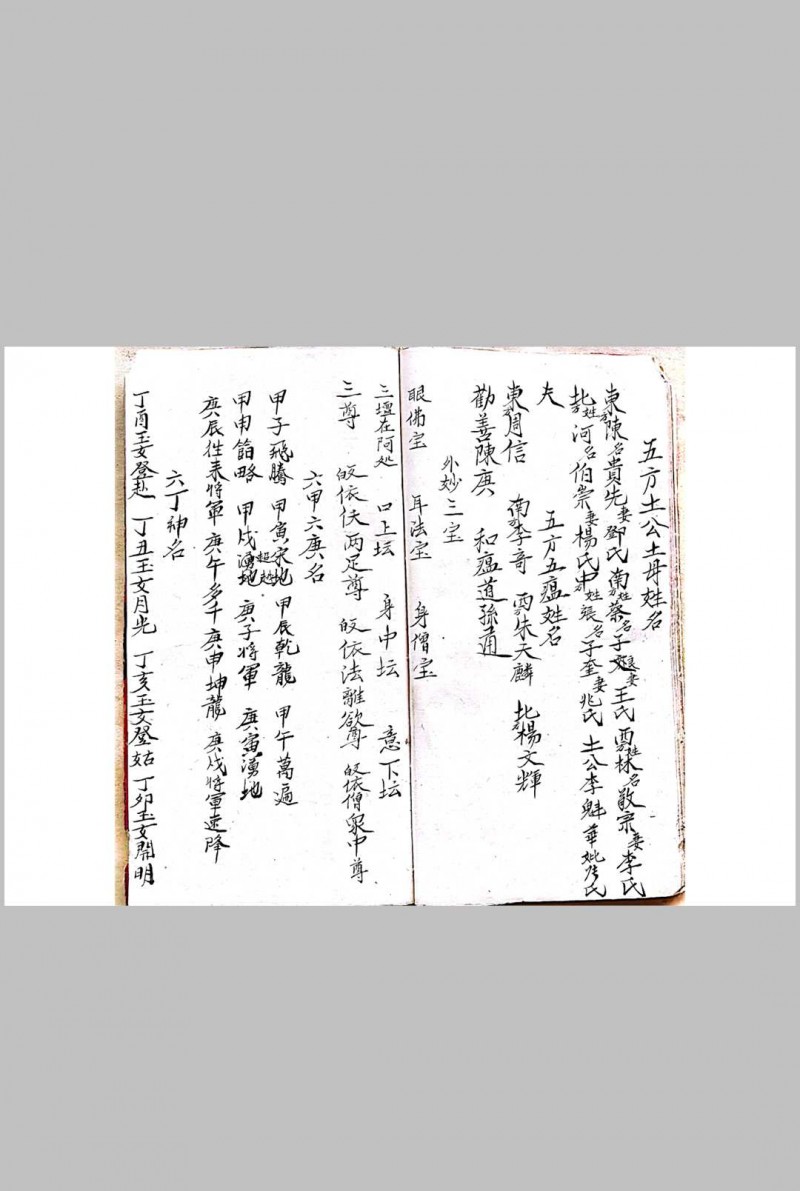 五方土公土母姓名
東方陳名貴先妻鄧氏 南方姓蔡名子良妻王氏 西方姓林名敬宗妻李氏
北方姓河名伯崇妻楊氏 中方姓張名子奎妻兆氏 土公李魁華妣氏
夫 五方五瘟姓名
東方周信 南方李奇 西方朱天麟 北方楊文輝
勸善陳庚 和瘟道孫通
外妙三宝
眼佛宝 耳法宝 身僧宝
三壇在阿処 口上坛 身中坛 意下坛
三尊 皈依伕两足尊 皈依法離欲尊 皈依僧眾中尊
六甲六庚名
甲子飛騰 甲寅宋地超越 甲辰乾龍 甲午萬遍
甲申韜略 甲戌湧地 庚子將軍 庚寅湧地
庚辰徃来將軍 庚午多千 庚申坤龍 庚戌將軍速降
六丁神名
丁酉玉女登赴 丁丑玉女月光 丁亥玉女登姑 丁卯玉女開明